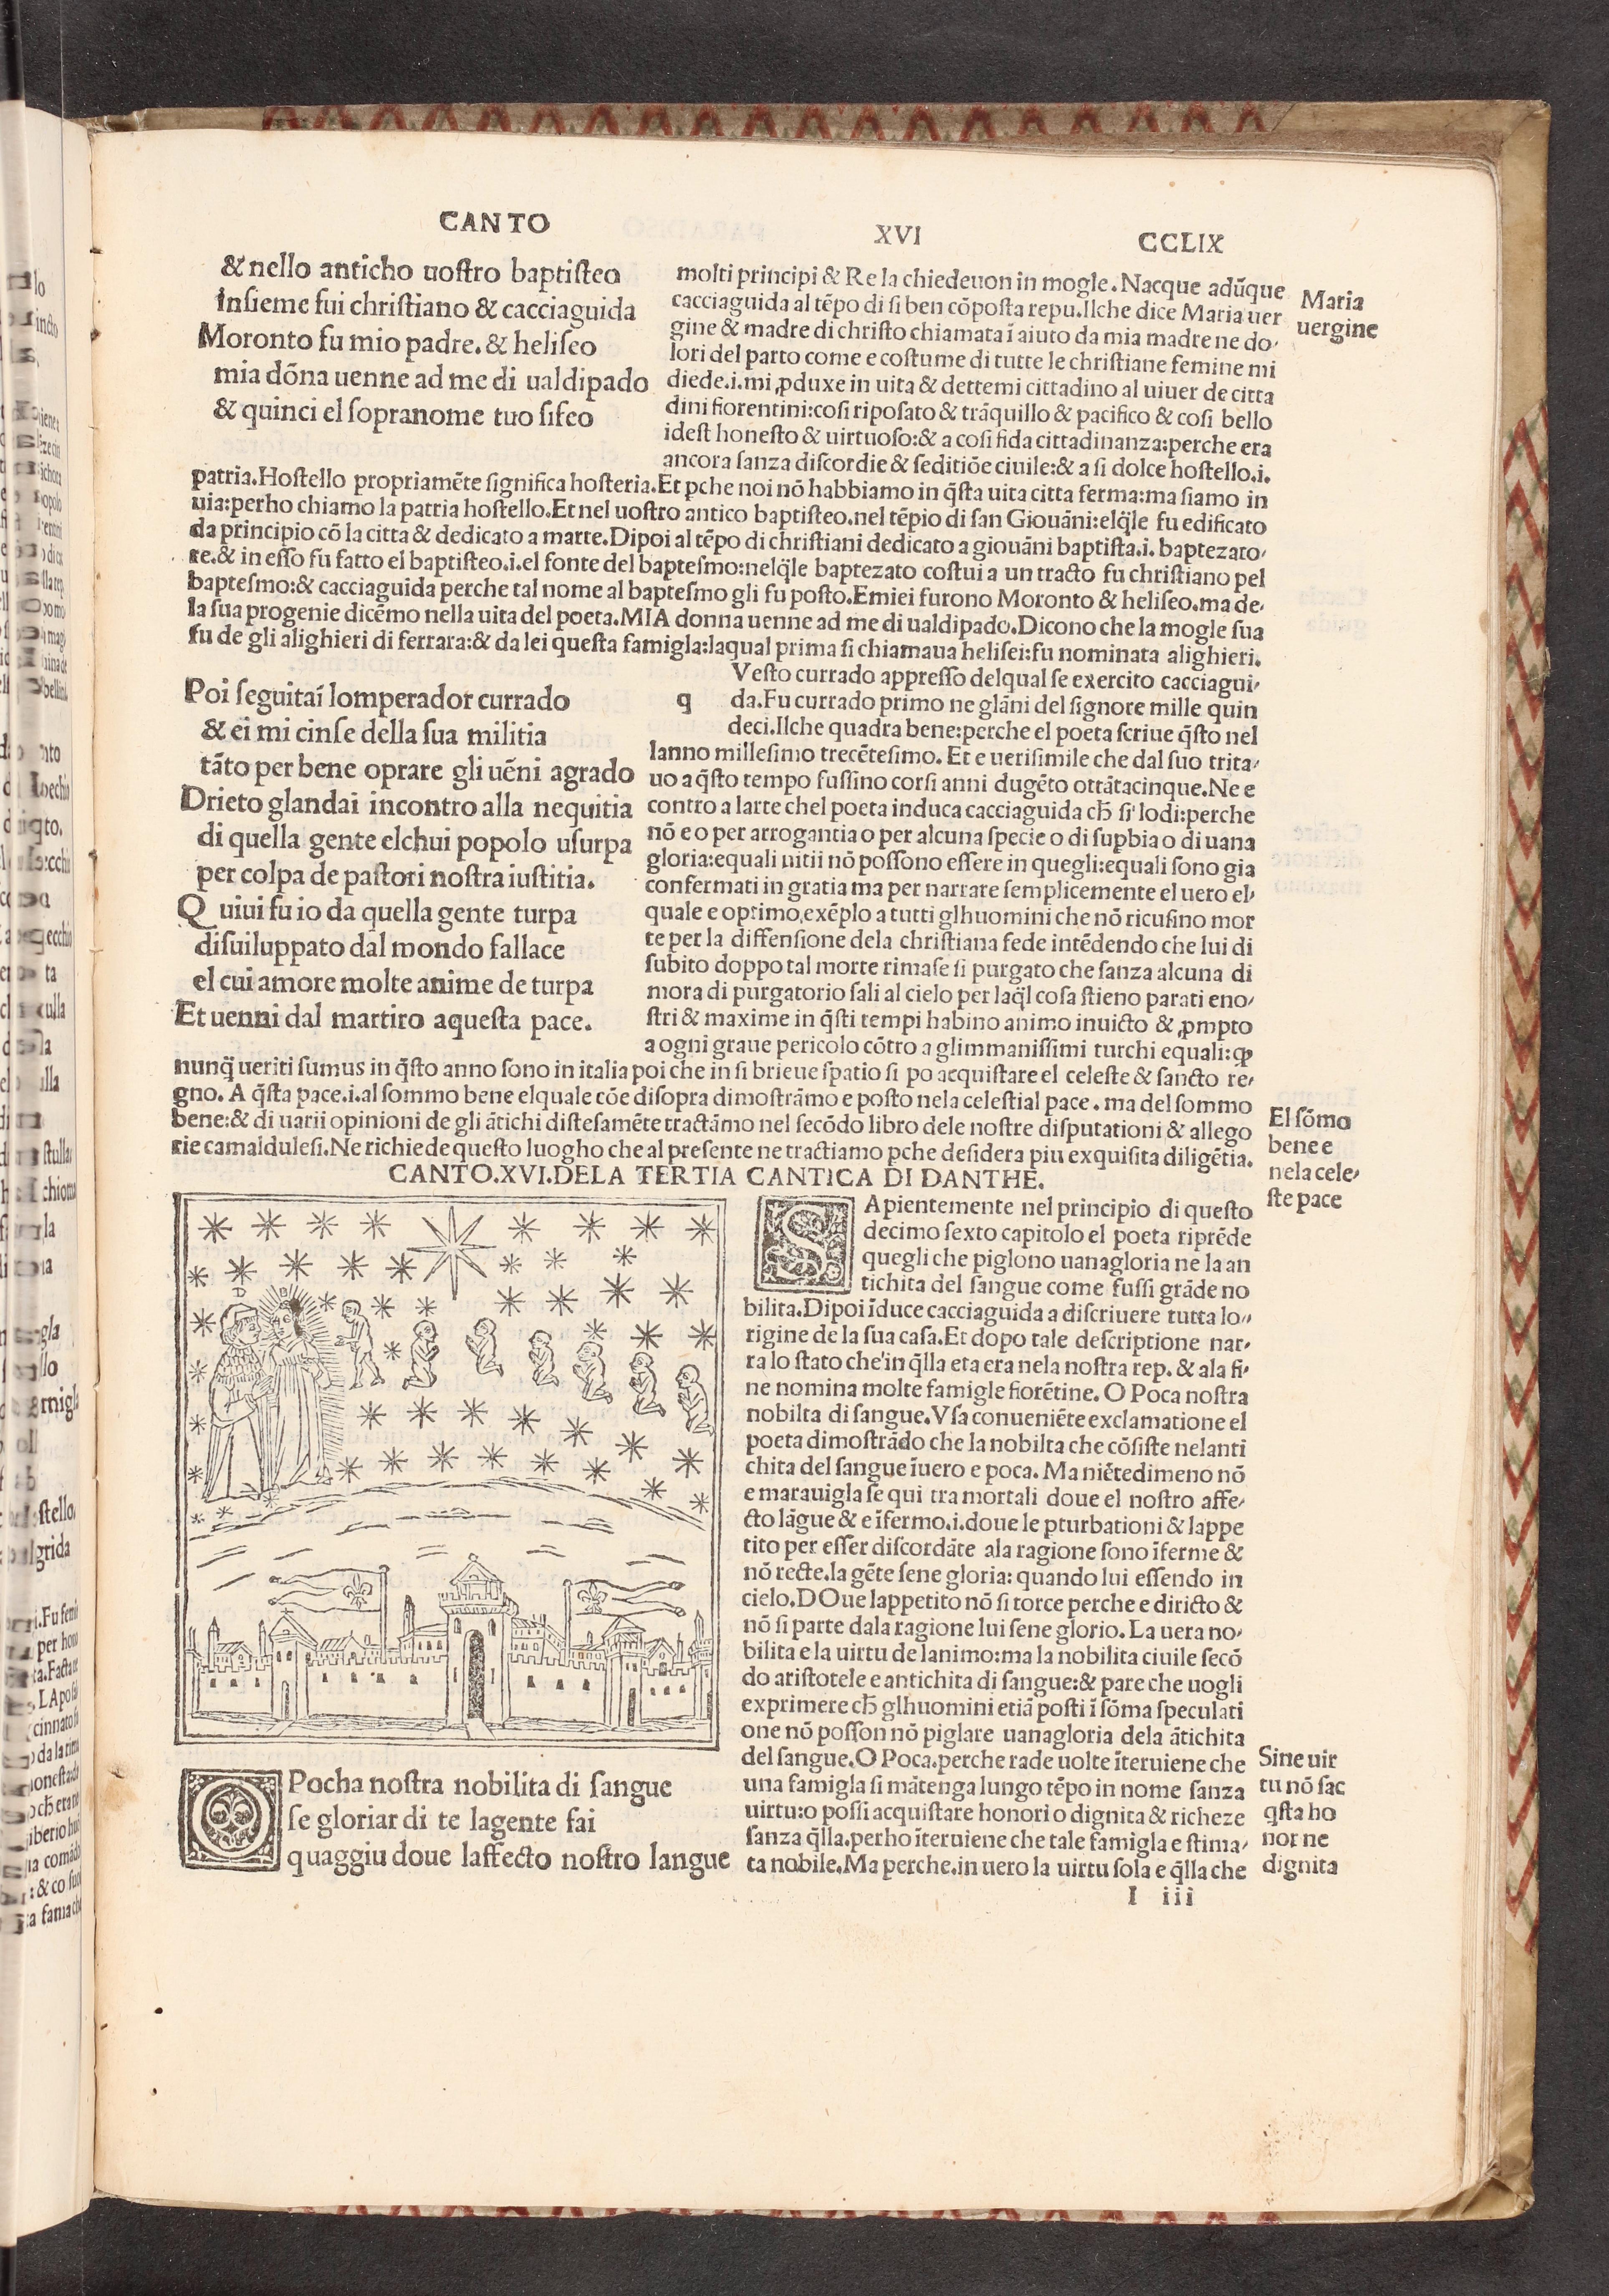 CANTO XVI CCLIX
& nello anticho uoſtro baptiſteo
inſieme fui chriſtiano & cacciaguida
Moronto fu mio padre. & heliſeo
mia dōna uenne ad me di ualdipado
& quinci el ſopranome tuo ſifeo
molti principi & Re la chiedeuon in mogle. Nacque adūque
cacciaguida al tēpo di ſi ben cōpoſta repu. Ilche dice Maria uer
gine & madre di chriſto chiamata ī aiuto da mia madre ne do-
lori del parto come e coſtume di tutte le chriſtiane femine mi
diede.i.mi ꝓduxe in uita & dettemi cittadino al uiuer de citta
dini fiorentini:coſi ripoſato & trāquillo & pacifico & coſi bello
ideſt honeſto & uirtuoſo:& a coſi fida cittadinanza:perche era
ancora ſanza diſcordie & ſeditiōe ciuile:& a ſi dolce hoſtello.i.
Maria
uergine
patria.Hoſtello propriamēte ſignifica hoſteria.Et pche noi nō habbiamo in q̄ſta uita citta ferma:ma ſiamo in
uia:perho chiamo la patria hoſtello.Et nel uoſtro antico baptiſteo.nel tēpio di ſan Giouāni:elq̄le fu edificato
da principio cō la citta & dedicato a marte.Dipoi al tēpo di chriſtiani dedicato a giouāni baptiſta.i. baptezato-
re.& in eſſo fu fatto el baptiſteo.i.el fonte del bapteſmo:nelq̄le baptezato coſtui a un tracto fu chriſtiano pel
bapteſmo:& cacciaguida perche tal nome al bapteſmo gli fu poſto.Emiei furono Moronto & heliſeo.ma de-
la ſua progenie dicēmo nella uita del poeta.MIA donna uenne ad me di ualdipado.Dicono che la mogle ſua
fu de gli alighieri di ferrara:& da lei queſta famigla:laqual prima ſi chiamaua heliſei:fu nominata alighieri.
Poi ſeguitai lomperador currado
& ei mi cinſe della ſua militia
tāto per bene oprare gli uēni agrado
Drieto glandai incontro alla nequitia
di quella gente elchui popolo uſurpa
per colpa de paſtori noſtra iuſtitia.
Q uiui fu io da quella gente turpa
diſuiluppato dal mondo fallace
el cui amore molte anime de turpa
Et uenni dal martiro aqueſta pace.
q
Veſto currado appreſſo delqual ſe exercito cacciagui-
da.Fu currado primo ne glāni del ſignore mille quin
deci.Ilche quadra bene:perche el poeta ſcriue q̄ſto nel
lanno milleſimo trecēteſimo. Et e ueriſimile che dal ſuo trita-
uo a q̄ſto tempo fuſſino corſi anni dugēto ottātacinque.Ne e
contro a larte chel poeta induca cacciaguida ch̄ ſi lodi:perche
nō e o per arrogantia o per alcuna ſpecie o di ſupbia o di uana
gloria:equali uitii nō poſſono eſſere in quegli:equali ſono gia
confermati in gratia ma per narrare ſemplicemente el uero el-
quale e optimo,exēplo a tutti glhuomini che nō ricuſino mor
te per la diffenſione dela chriſtiana fede intēdendo che lui di
ſubito doppo tal morte rimaſe ſi purgato che ſanza alcuna di
mora di purgatorio ſali al cielo per laq̄l coſa ſtieno parati eno-
ſtri & maxime in q̄ſti tempi habino animo inuicto & ꝓmpto
a ogni graue pericolo cōtro a glimmaniſſimi turchi equali:ꝙ
nunq̄ ueriti ſumus in q̄ſto anno ſono in italia poi che in ſi brieue ſpatio ſi po acquiſtare el celeſte & ſancto re-
gno. A q̄ſta pace.i.al ſommo bene elquale cōe diſopra dimoſtrāmo e poſto nela celeſtial pace . ma del ſommo
bene:& di uarii opinioni de gli ātichi diſteſamēte tractāmo nel ſecōdo libro dele noſtre diſputationi & allego
rie camalduleſi.Ne richiede queſto luogho che al preſente ne tractiamo pche deſidera piu exquiſita diligētia.
El ſōmo
bene e
nela cele-
ſte pace
CANTO.XVI.DELA TERTIA CANTICA DI DANTHE.
D B
SApientemente nel principio di queſto
decimo ſexto capitolo el poeta riprēde
quegli che piglono uanagloria ne la an
tichita del ſangue come fuſſi grāde no
bilita.Dipoi īduce cacciaguida a diſcriuere tutta lo-
rigine de la ſua caſa.Et dopo tale deſcriptione nar-
ra lo ſtato che in q̄lla eta era nela noſtra rep. & ala fi-
ne nomina molte famigle fiorētine. O Poca noſtra
nobilta di ſangue.Vſa conueniēte exclamatione el
poeta dimoſtrādo che la nobilta che cōſiſte nelanti
chita del ſangue īuero e poca. Ma niētedimeno nō
e marauigla ſe qui tra mortali doue el noſtro affe-
cto lāgue & e īfermo.i.doue le pturbationi & lappe
tito per eſſer diſcordāte ala ragione ſono īferme &
nō recte.la gēte ſene gloria: quando lui eſſendo in
cielo.DOue lappetito nō ſi torce perche e diricto &
nō ſi parte dala ragione lui ſene glorio. La uera no-
bilita e la uirtu de lanimo:ma la nobilita ciuile ſecō
do ariſtotele e antichita di ſangue:& pare che uogli
exprimere ch̄ glhuomini etiā poſti ī ſōma ſpeculati
one nō poſſon nō piglare uanagloria dela ātichita
del ſangue.O Poca.perche rade uolte īteruiene che
una famigla ſi mātenga lungo tēpo in nome ſanza
uirtu:o poſſi acquiſtare honori o dignita & richeze
ſanza q̄lla.perho īteruiene che tale famigla e ſtima-
ta nobile.Ma perche.in uero la uirtu ſola e q̄lla che
Sine uir
tu nō ſac
qſta ho
nor ne
dignita
O Pocha noſtra nobilita di ſangue
ſe gloriar di te lagente fai
quaggiu doue laffecto noſtro langue
I iii